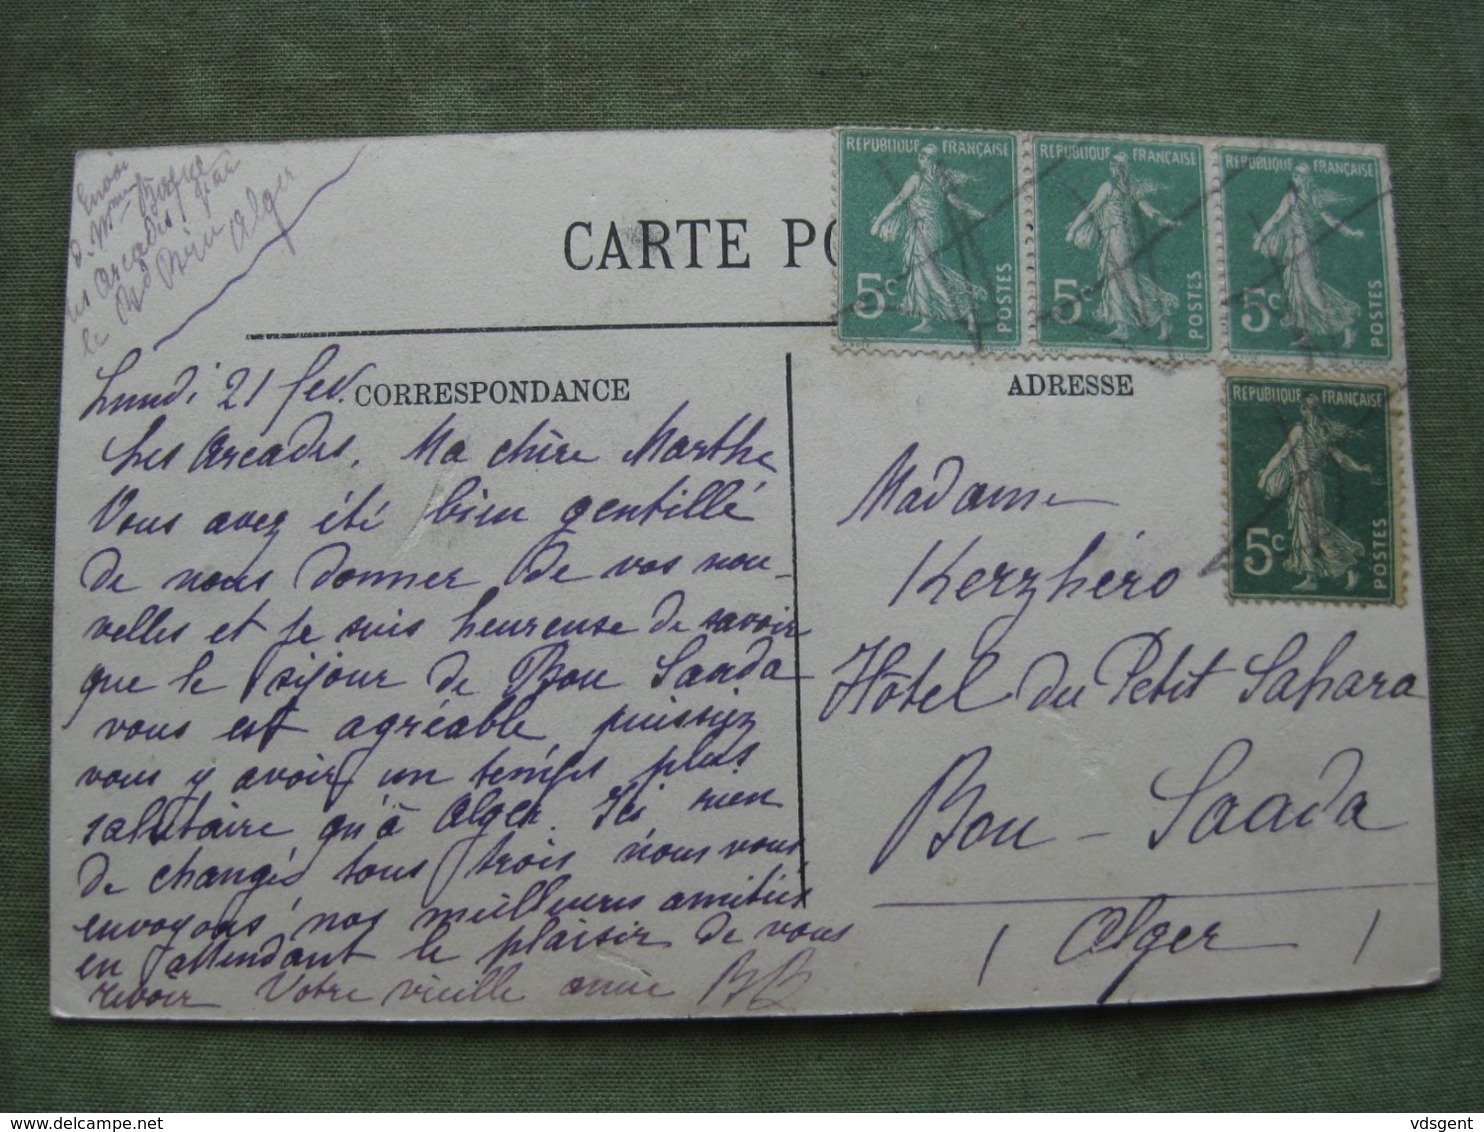 Envoi
d. Mme Bagur
les Arcadis
le Bd Bru Alger
CARTE PO
RÉPUBLIQUE FRANÇAISE
5c POSTES
RÉPUBLIQUE FRANÇAISE
5c POSTES
RÉPUBLIQUE FRANÇAISE
5c POSTES
RÉPUBLIQUE FRANÇAISE
5c POSTES
CORRESPONDANCE
Lundi 21 fev.
Les Arcades. Ma chère Marthe
Vous avez été bien gentille
de nous donner de vos nou-
velles et je suis heureuse de savoir
que le séjour de Bou Saada
vous est agréable puissiez
vous y avoir un temps plus
salutaire qu'à Alger. Ici rien
de changé tous trois nous vous
envoyons nos meilleures amitiés
en attendant le plaisir de vous
revoir Votre vieille amie BB
ADRESSE
Madame
Kerzhéro
Hôtel du Petit Sahara
Bou-Saada
(Alger)
delcampe.net
vdsgent